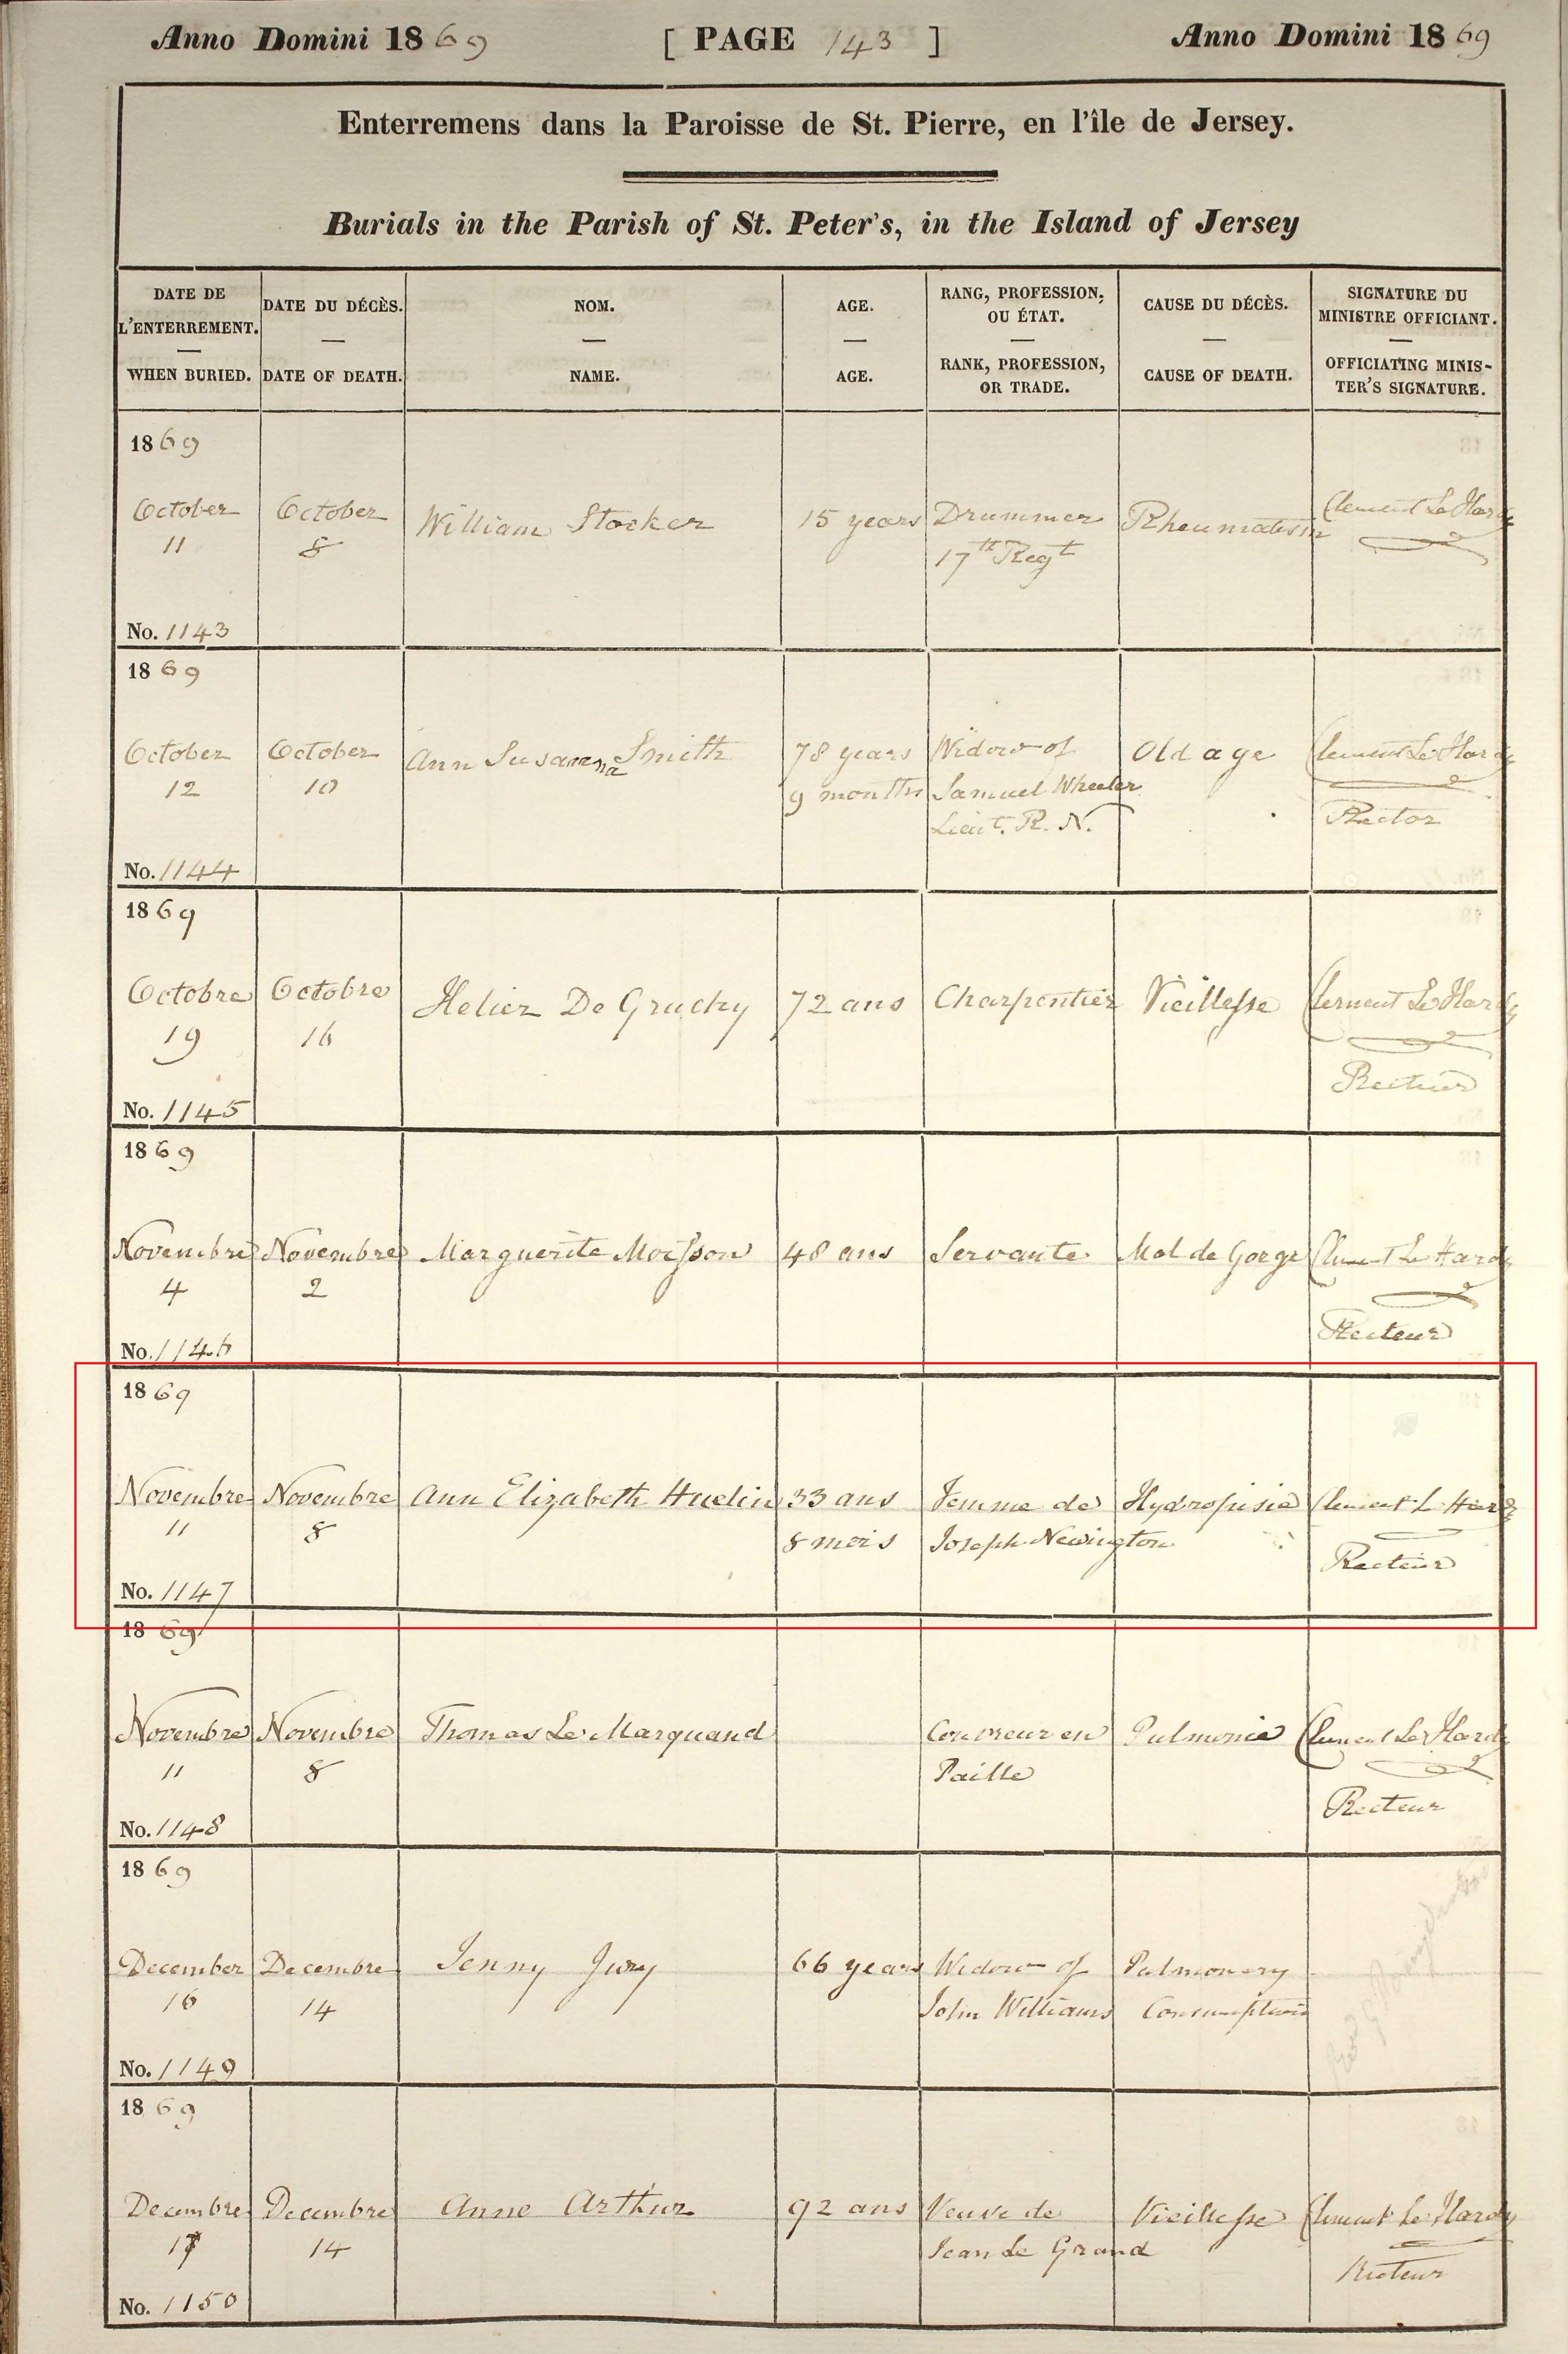 Anno Domini 1869 [ PAGE 143 ] Anno Domini 1869
Enterremens dans la Paroisse de St. Pierre, en l'île de Jersey.
Burials in the Parish of St. Peter's, in the Island of Jersey
DATE DE L'ENTERREMENT. — WHEN BURIED.
DATE DU DÉCÈS. — DATE OF DEATH.
NOM. — NAME.
AGE. — AGE.
RANG, PROFESSION, OU ÉTAT. — RANK, PROFESSION, OR TRADE.
CAUSE DU DÉCÈS. — CAUSE OF DEATH.
SIGNATURE DU MINISTRE OFFICIANT. — OFFICIATING MINIS-TER'S SIGNATURE.
1869
October October William Stocker 15 years Drummer Rheumatism Clement Le Hardy
11 8 17th Regt
No. 1143
1869
October October Ann Susanna Smith 78 years Widow of Old age Clement Le Hardy
12 10 9 months Samuel Wheeler
Lieut. R. N. Rector
No. 1144
1869
Octobre Octobre Helier De Gruchy 72 ans Charpentier Vieillesse Clement Le Hardy
19 16
Recteur
No. 1145
1869
Novembre Novembre Marguerite Moisson 48 ans Servante Mal de Gorge Clement Le Hardy
4 2
Recteur
No. 1146
1869
Novembre Novembre Ann Elizabeth Huelin 33 ans Femme de Hydropisie Clement Le Hardy
11 8 8 mois Joseph Newington
Recteur
No. 1147
1869
Novembre Novembre Thomas Le Marquand Couvreur en Pulmonie Clement Le Hardy
11 8 Paille
Recteur
No. 1148
1869
December Decembre Jenny Jury 66 years Widow of Pulmonary
16 14 John Williams Consumption
No. 1149
1869
Decembre Decembre Anne Arthur 92 ans Veuve de Vieillesse Clement Le Hardy
17 14 Jean Le Grand
Recteur
No. 1150